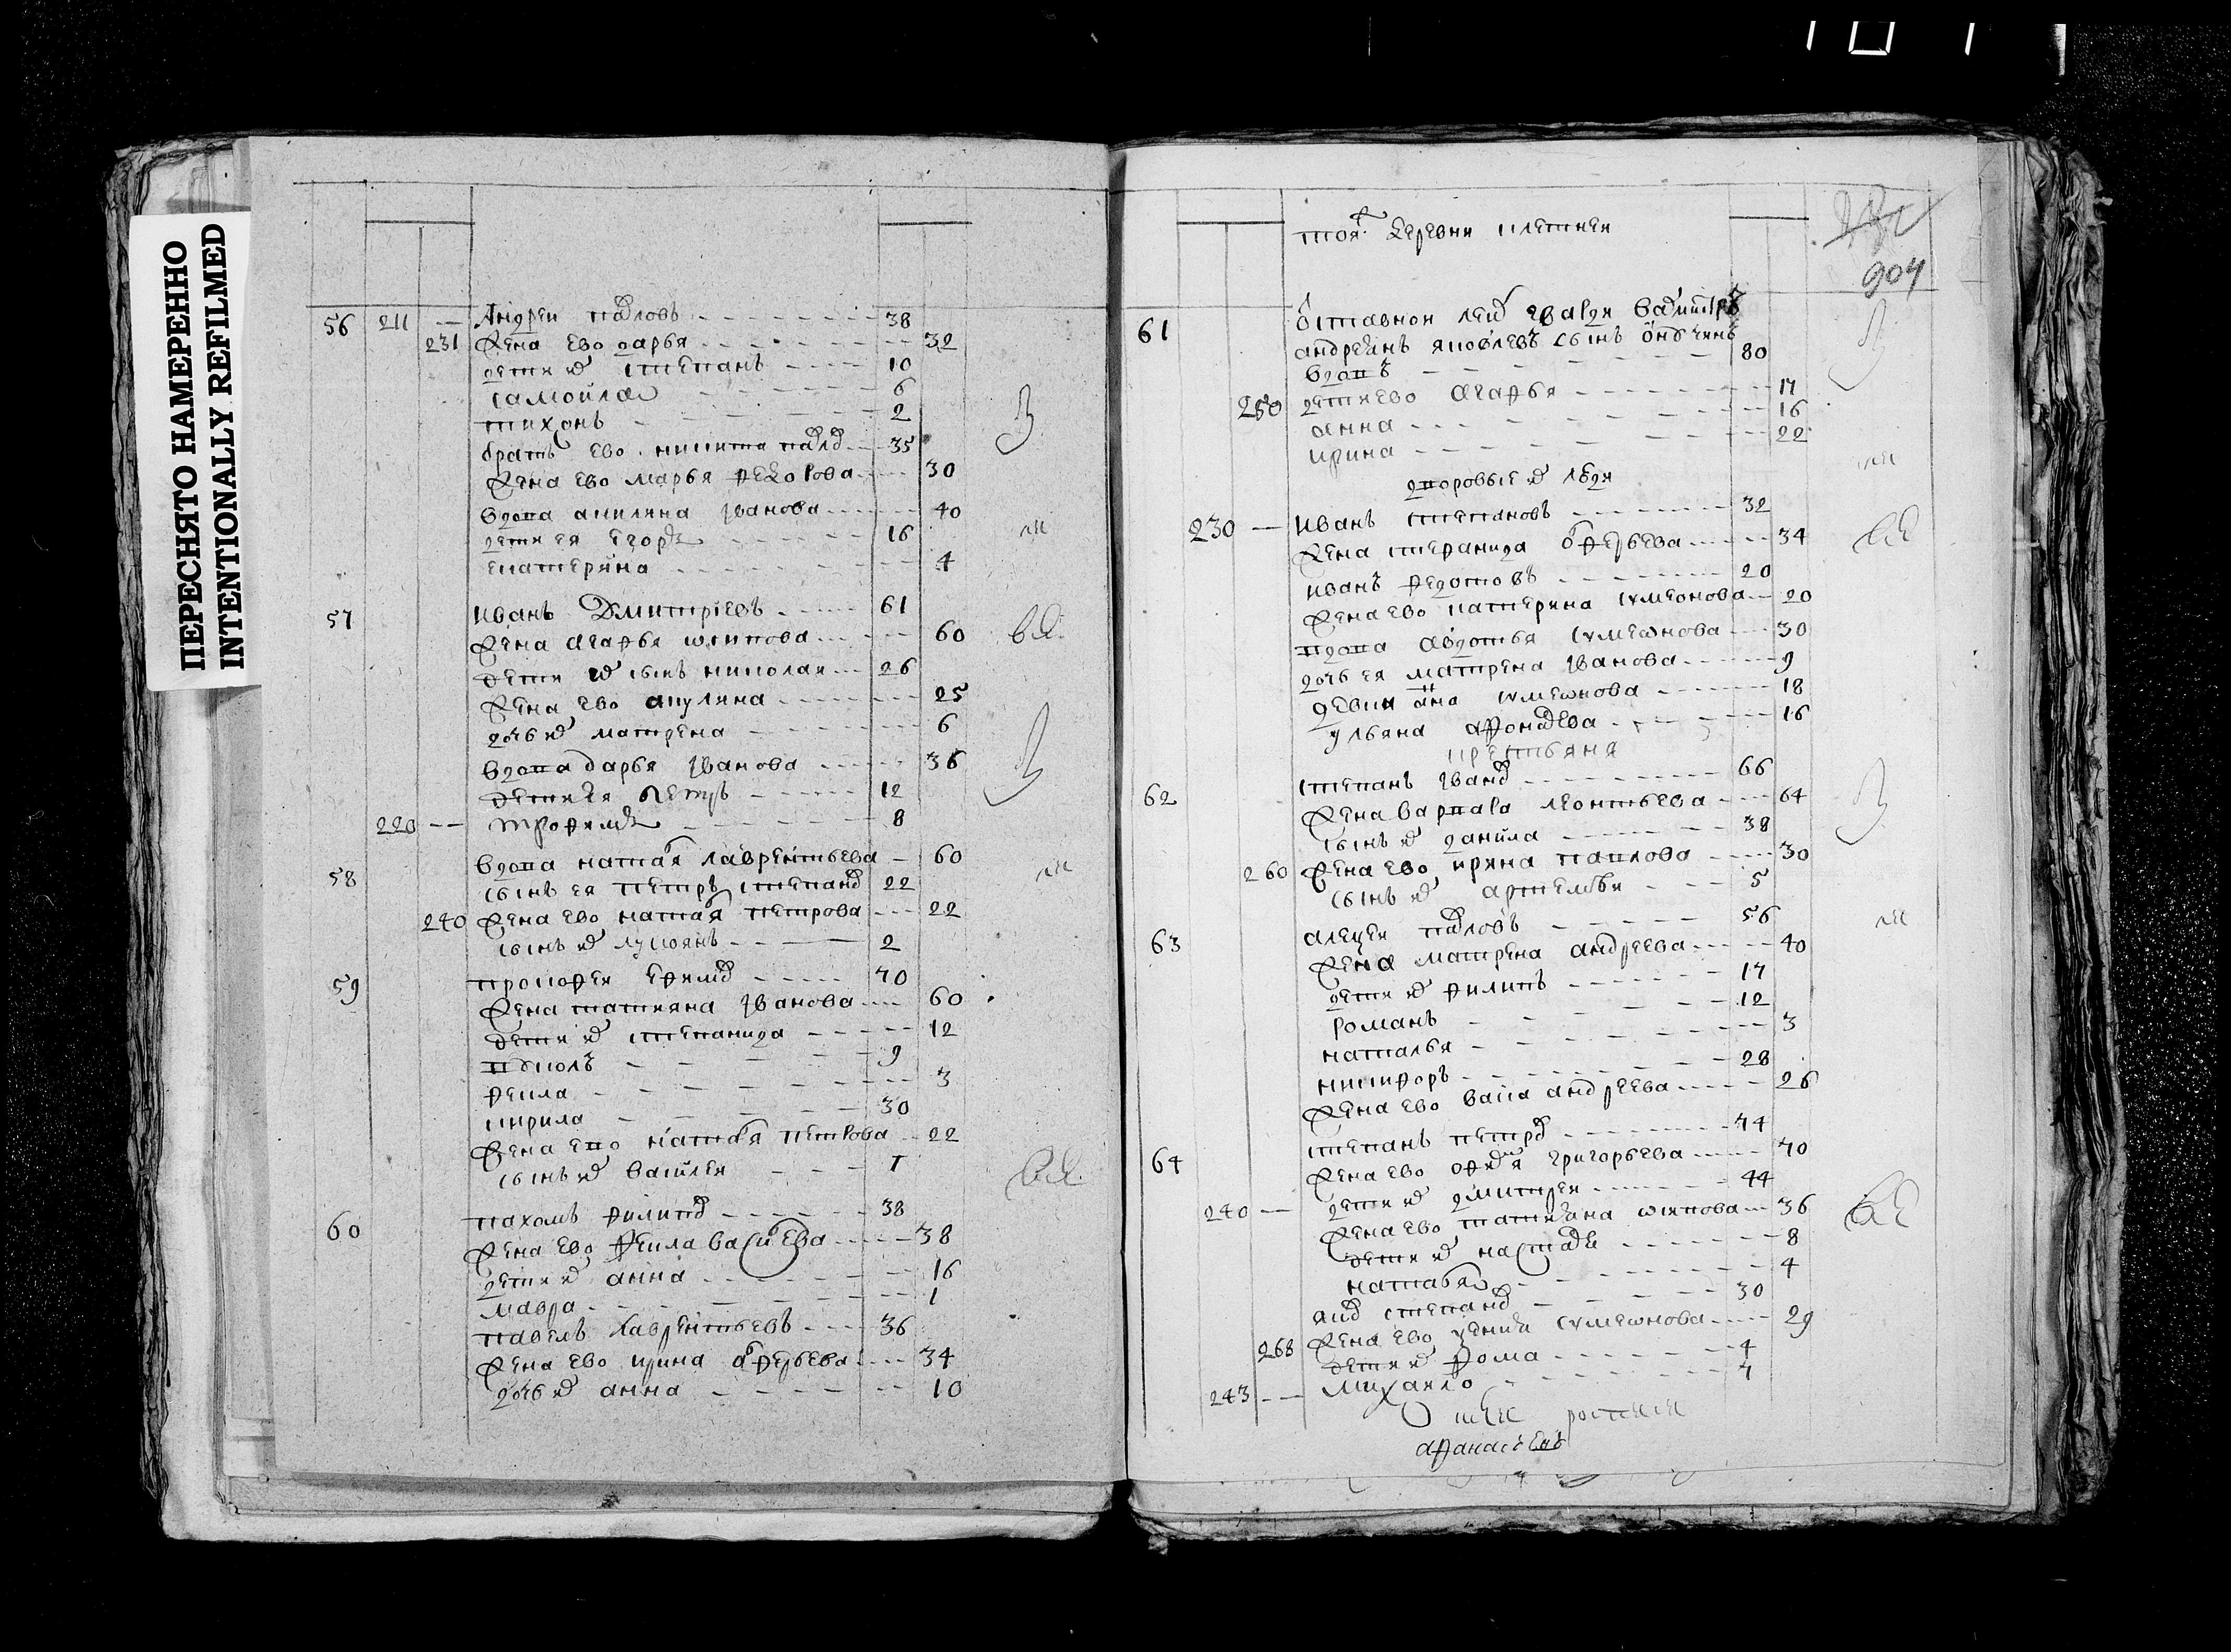 ПЕРЕСНЯТО НАМЕРЕННО
INTENTIONALLY REFILMED
56 211 — Андреи павловъ 38
231 Жена ево дарья 32
дети их степанъ 10
самоила 6
тихонъ 2
братъ ево никита павлов 35
Жена ево марья федорова 30
вдова акилина иванова 40
дети ея егоръ 16
екатерина 4
57 иванъ Дмитриевъ 61
Жена агафья осипова 60
дети их сынъ николаи 26
Жена ево акулина 25
дочь их матрена 6
вдова дарья иванова 36
дети ея петръ 12
220 — трофимъ 8
58 вдова наталя лаврентьева 60
сынъ ея петръ степанов 22
240 Жена ево наталя петрова 22
сынъ их лукоянъ 2
59 прокофеи ефимов 70
Жена татияна иванова 60
дети их степанида 12
9
фекла 3
кирила 30
Жена ево наталя петрова 22
сынъ их василеи 1
60 пахомъ филипов 38
Жена ево фекла василева 38
дети их анна 16
мавра 1
павелъ лаврентьевъ 36
Жена ево ирина 34
дочь их анна 10
тоя деревни
904
61 отставнои леиб гвардии
андреянъ яковлевъ сынъ
вдовъ 80
250 дети ево агафья 17
анна 16
ирина 22
дворовые их люди
230 — иванъ степановъ 32
Жена степанида 34
иванъ федотовъ 20
Жена ево катерина сумеонова 20
вдова авдотья сумеонова 30
дочь ея матрена иванова 9
девки анна сумеонова 18
ульяна 16
крестьяня
62 степанъ иванов 66
Жена варвара леонтьева 64
сынъ их данила 38
260 Жена ево ирина павлова 30
сынъ их артемеи 5
63 алексеи павловъ 56
Жена матрена андреева 40
дети их филипъ 17
романъ 12
наталья 3
никифоръ 28
Жена ево васса андреева 26
64 степанъ петров 74
Жена ево григорьева 70
240 — дети их дмитреи 44
Жена ево татияна осипова 36
дети их настася 8
наталья 4
яков степанов 30
268 Жена ево ксения сумеонова 29
дети их фома 4
243 — михаило 7
афанасьевъ